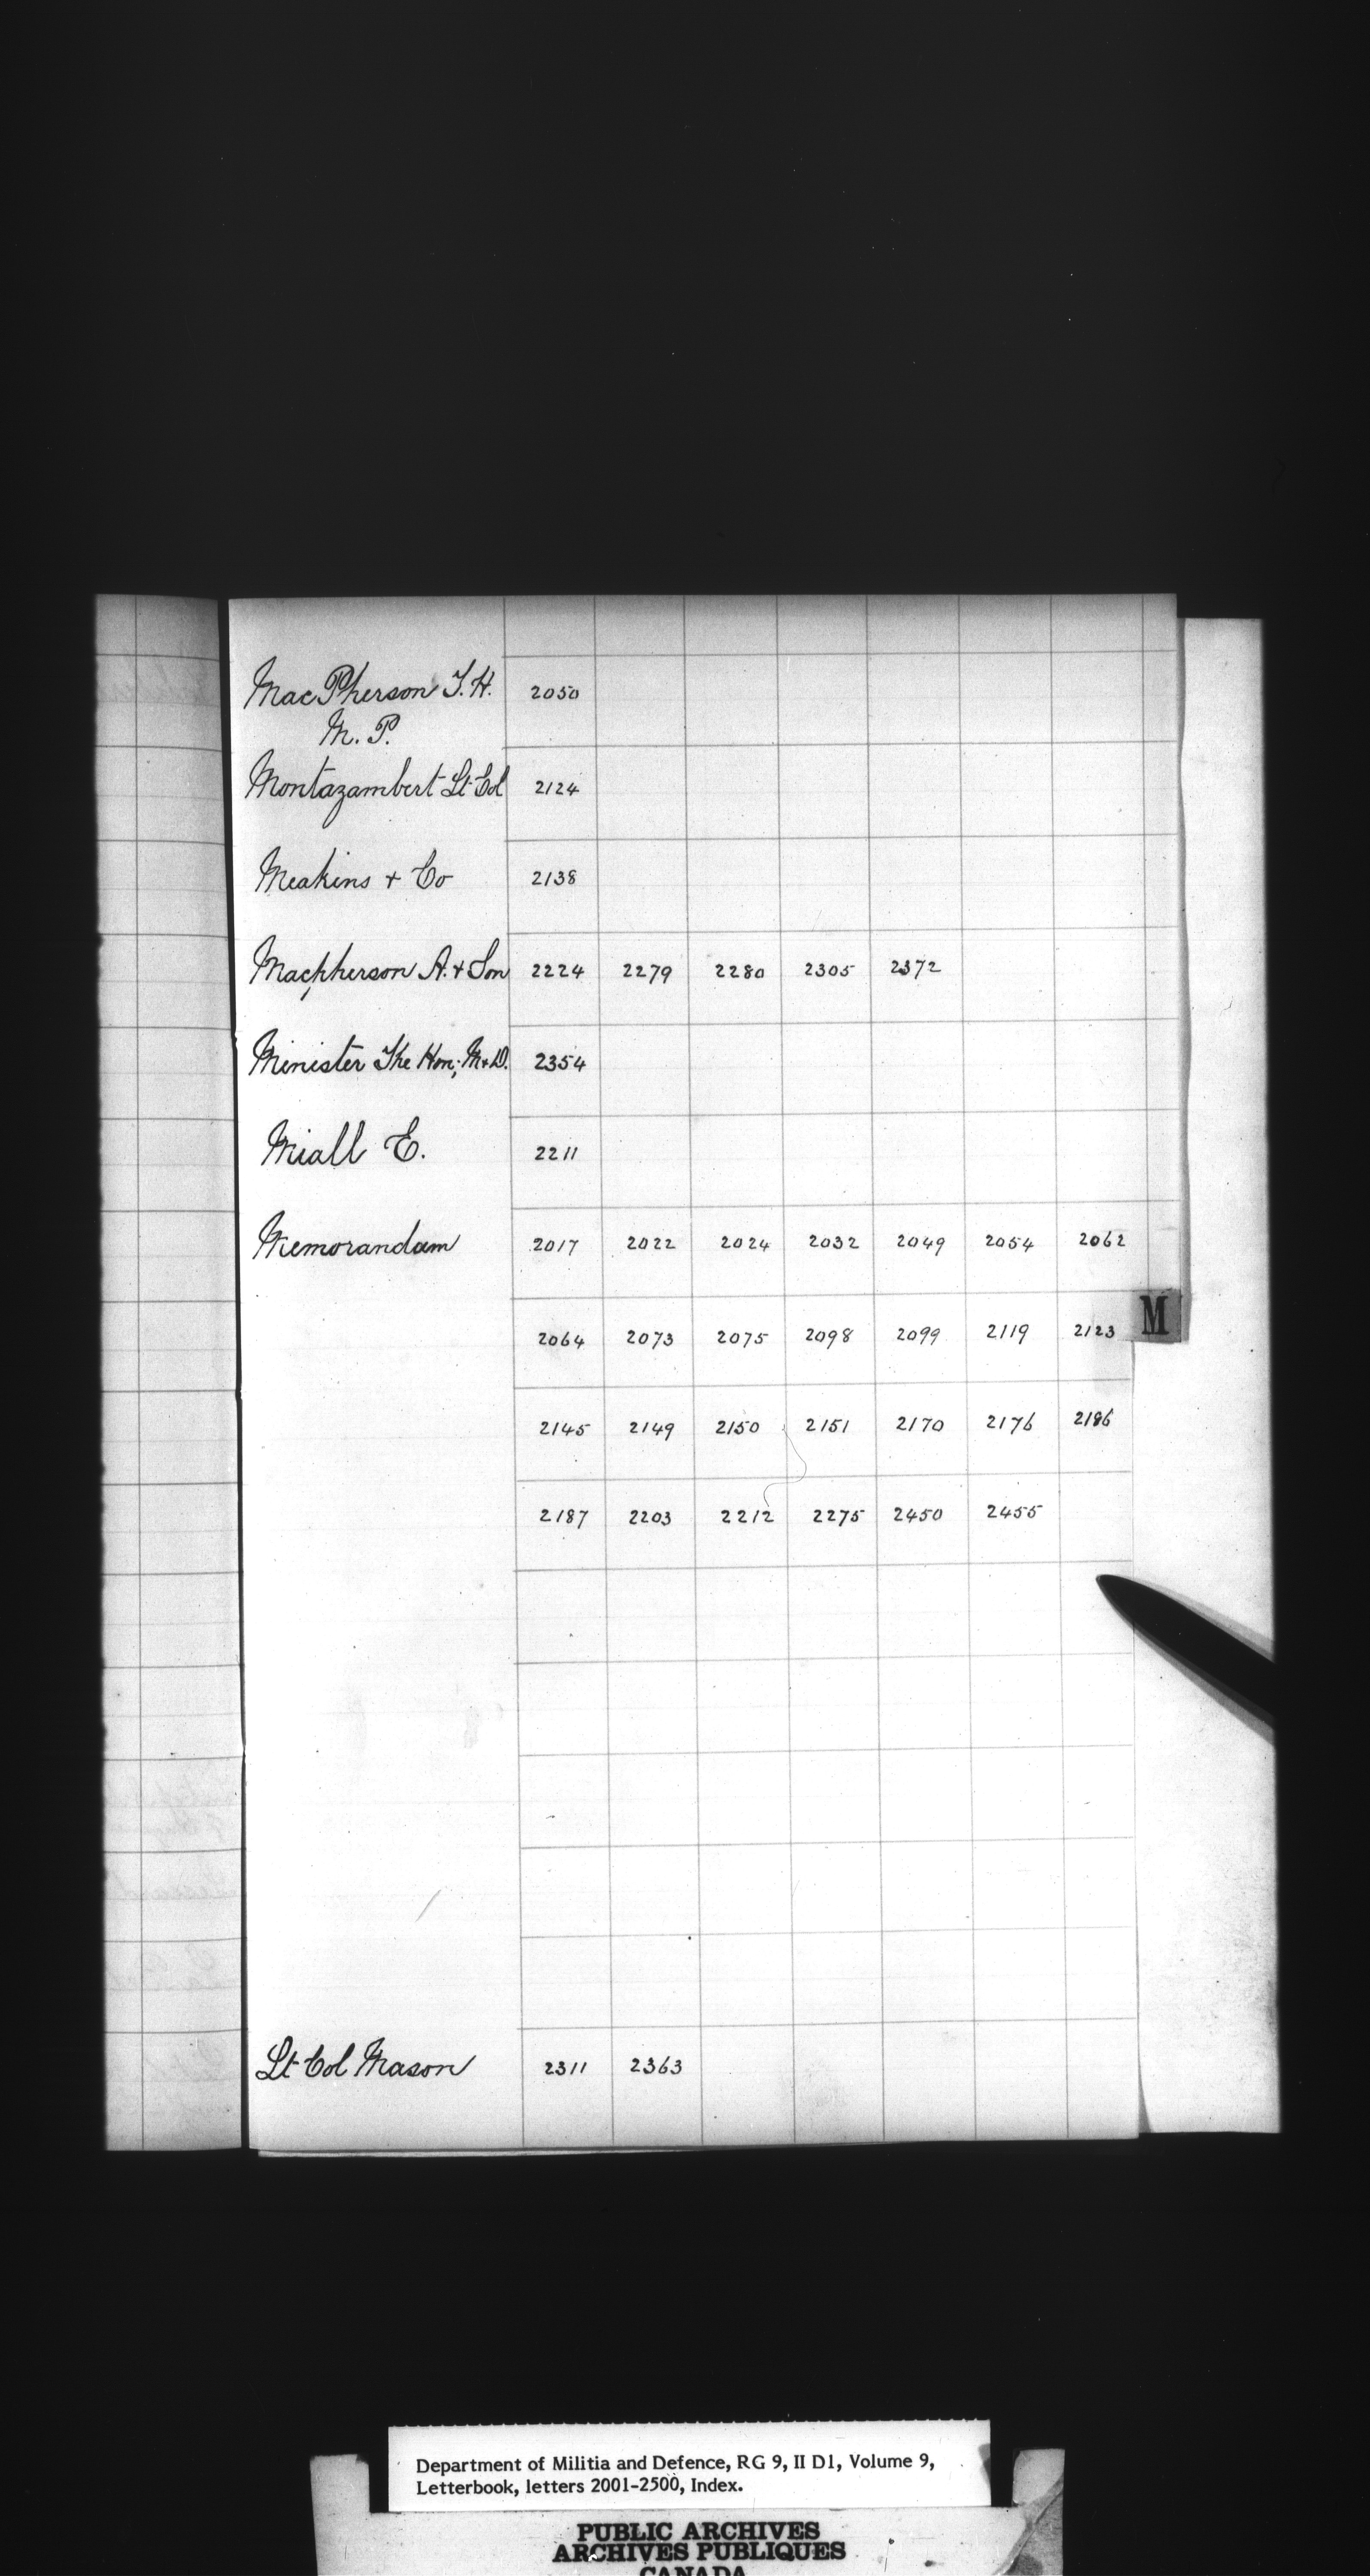 MacPherson T. H. 2050
M. P.
Montazambert Lt Col 2124
Meakins + Co 2138
Macpherson A. + Son 2224 2279 2280 2305 2372
Minister The Hon; M+D. 2354
Miall E. 2211
Memorandum 2017 2022 2024 2032 2049 2054 2062
M
2064 2073 2075 2098 2099 2119 2123
2145 2149 2150 2151 2170 2176 2186
2187 2203 2212 2275 2450 2455
Lt Col Mason 2311 2363
Department of Militia and Defence, RG 9, II D1, Volume 9,
Letterbook, letters 2001-2500, Index.
PUBLIC ARCHIVES
ARCHIVES PUBLIQUES
CANADA